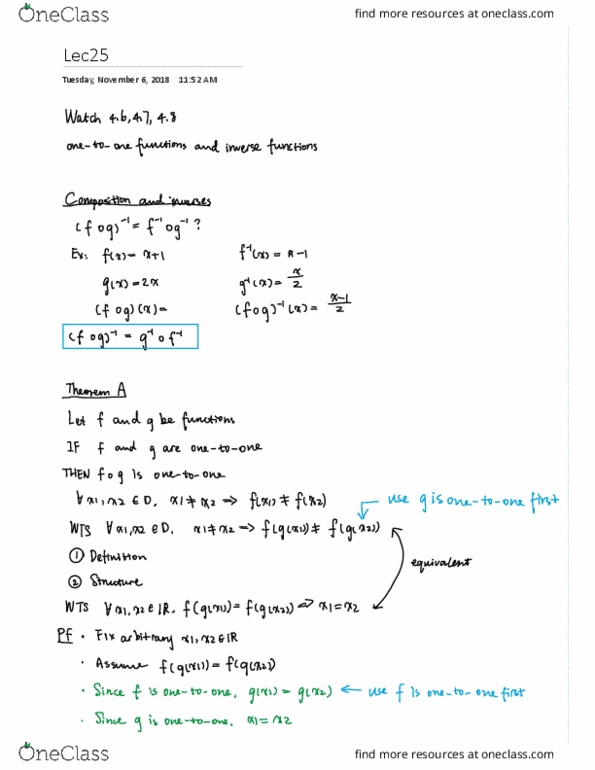 OneClass
find more resources at oneclass.com
Lec25
Tuesday, November 6, 2018 11:52 AM
Watch 4.6, 4.7, 4.8
one-to-one functions and inverse functions
Composition and inverses
(f o g)⁻¹ = f⁻¹ o g⁻¹ ?
Ex: f(x) = x+1 f⁻¹(x) = x-1
g(x) = 2x g⁻¹(x) = x/2
(f o g)(x) = (f o g)⁻¹(x) = (x-1)/2
(f o g)⁻¹ = g⁻¹ o f⁻¹
Theorem A
Let f and g be functions
IF f and g are one-to-one
THEN f o g is one-to-one
∀ x1, x2 ∈ D, x1 ≠ x2 ⇒ f(x1) ≠ f(x2) ← use g is one-to-one first
WTS ∀ x1, x2 ∈ D, x1 ≠ x2 ⇒ f(g(x1)) ≠ f(g(x2))
① Definition equivalent
② Structure
WTS ∀ x1, x2 ∈ IR, f(g(x1)) = f(g(x2)) ⇒ x1 = x2
Pf • Fix arbitrary x1, x2 ∈ IR
• Assume f(g(x1)) = f(g(x2))
• Since f is one-to-one, g(x1) = g(x2) ← use f is one-to-one first
• Since g is one-to-one, x1 = x2
OneClass
find more resources at oneclass.com